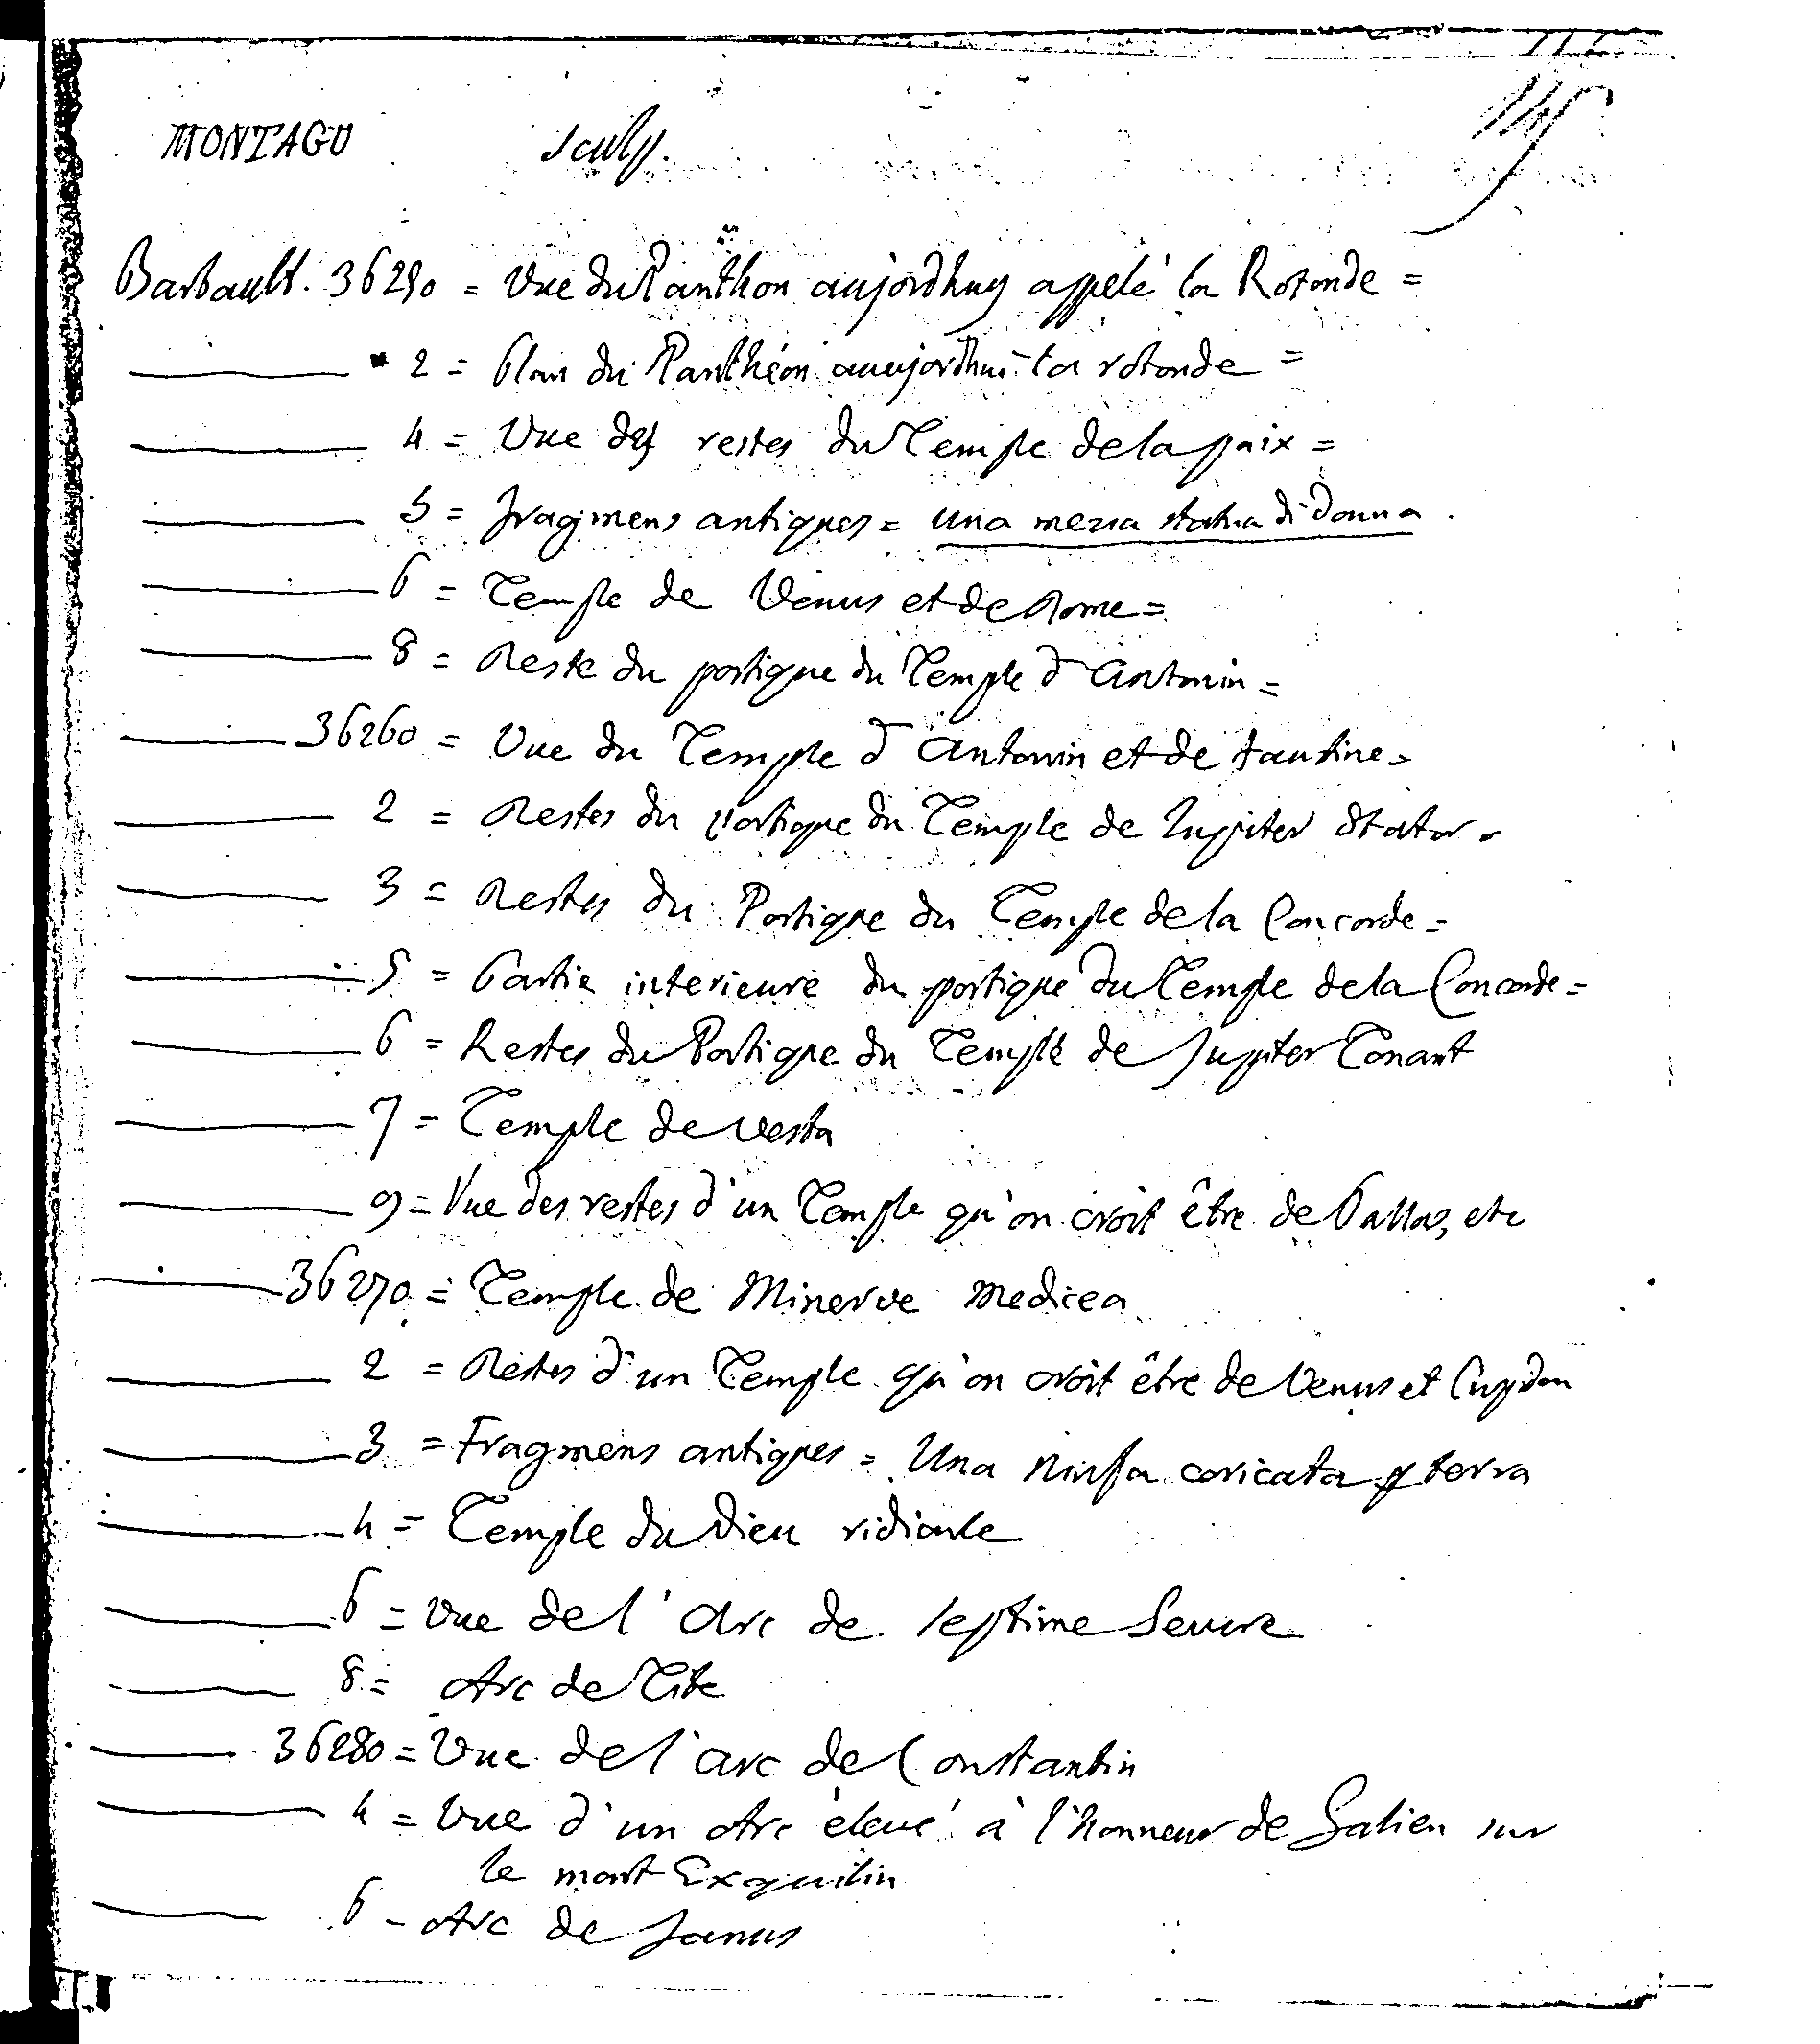 MONTAGU sculp.
Barbault. 36250 = Vue du Panthon aujordhuy appelé la Rotonde =
2 = Plan du Panthéon auujordhui la rotonde =
4 = Vue des restes du Temple de la paix =
5 = fragmens antiques = una mezza statua di donna.
6 = Temple de Venus et de Rome =
8 = Reste du portique du Temple d'Antonin =
36260 = Vue du Temple d'Antonin et de faustine =
2 = Restes du portique du Temple de Jupiter Stator =
3 = Restes du Portique du Temple de la Concorde =
5 = Partie interieure du portique du Temple de la Concorde =
6 = Restes du Portique du Temple de Jupiter Tonant
7 = Temple de Vesta
9 = Vue des restes d'un Temple qu'on croit être de Pallas, etc
36270 = Temple de Minerve Medicea
2 = Restes d'un Temple qu'on croit être de Venus et Cupidon
3 = Fragmens antiques = Una ninfa coricata p terra
4 = Temple du Dieu ridicule
6 = Vue de l'Arc de septime Severe
8 = Arc de Tite
36280 = Vue de l'arc de Constantin
4 = Vue d'un Arc élevé à l'honneur de Galien sur
le mont Exquilin
6 - Arc de Janus